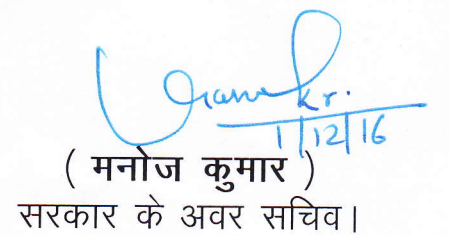 kr.
1/12/16
( मनोज कुमार )
सरकार के अवर सचिव।